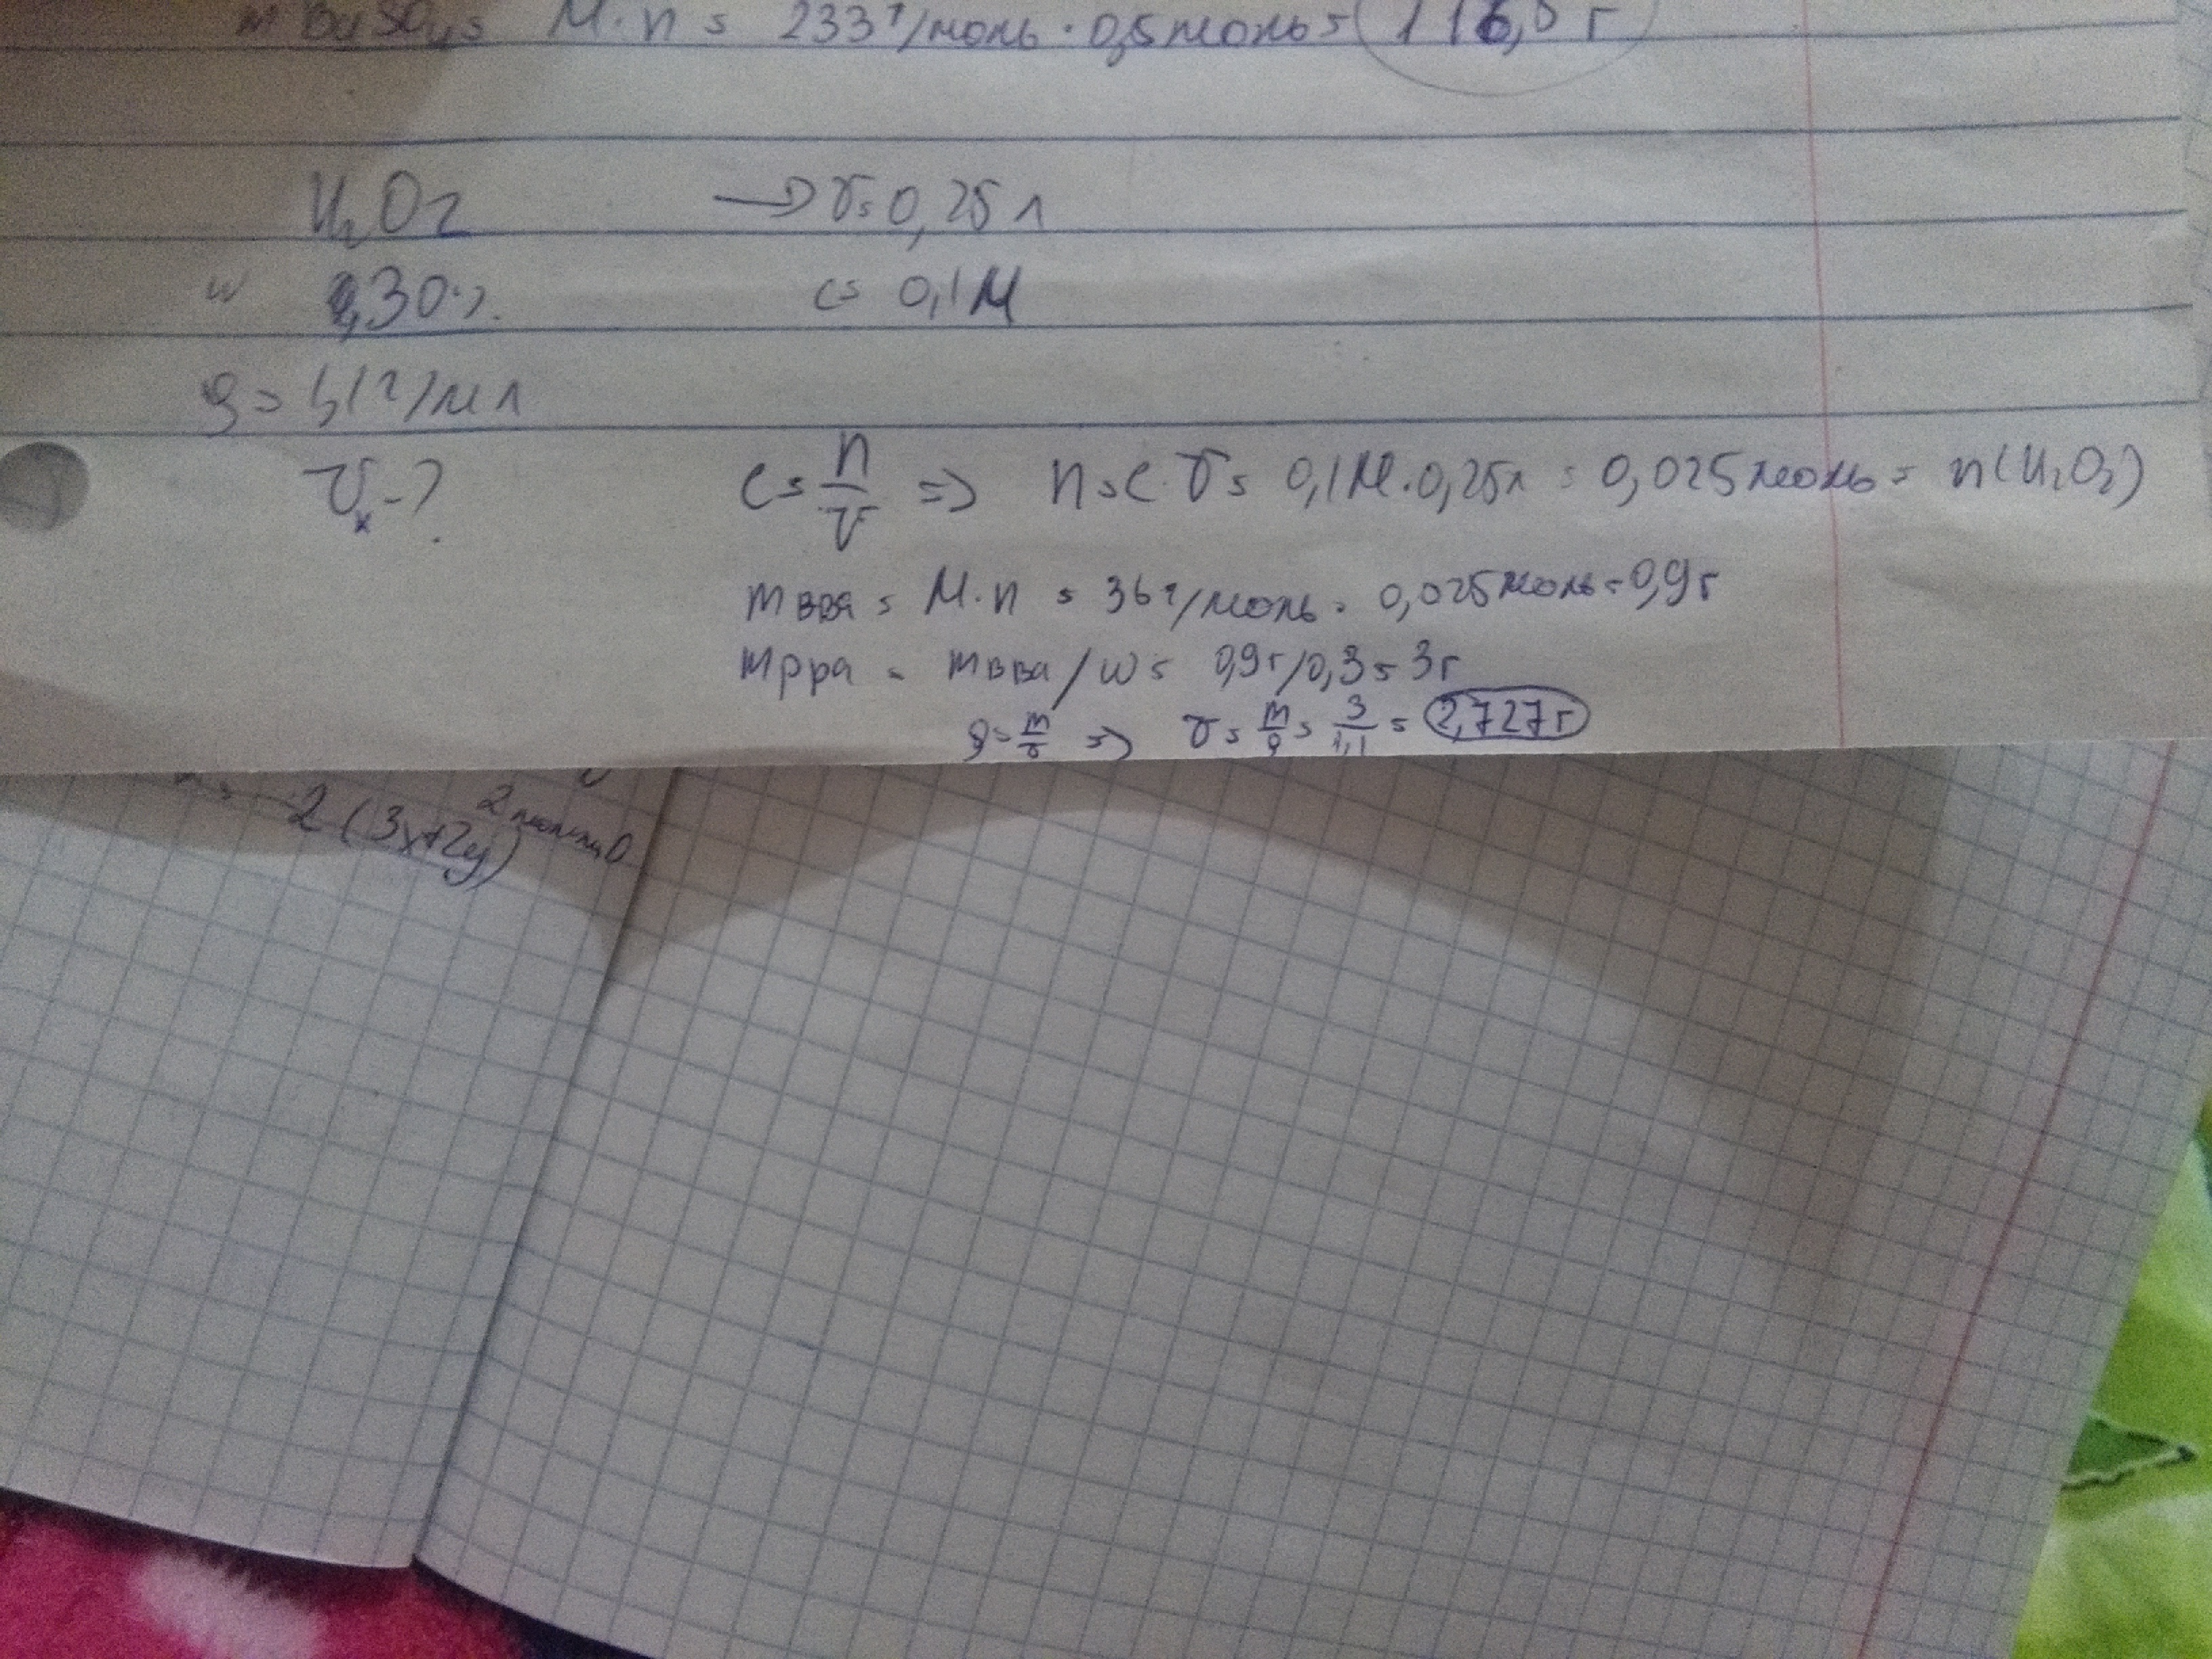 m BaSO₄ = M·n = 233 г/моль · 0,5 моль = 116,5 г
H₂O₂ → V = 0,25 л
w 0,30%. c = 0,1 M
ρ = 1,1 г/мл
Vₓ - ?
c = n/V => n = c·V = 0,1 M · 0,25 л = 0,025 моль = n(H₂O₂)
m вва = M·n = 36 г/моль · 0,025 моль = 0,9 г
m рра = m вва / w = 0,9 г / 0,3 = 3 г
ρ = m/V => V = m/ρ = 3/1,1 = 2,727 г
2 (3x+2y)